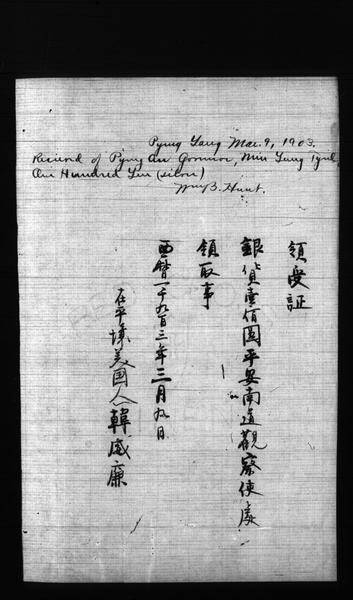 Pyeng Yang Mar. 9, 1903.
Received of Pyeng An Governor, Min Yung
One Hundred Yen (silver)
Wm B. Hunt.
領受証
銀貨壹佰圓平安南道觀察使處
領取事
西曆一千九百三年三月九日
在平壤美国人韓威廉